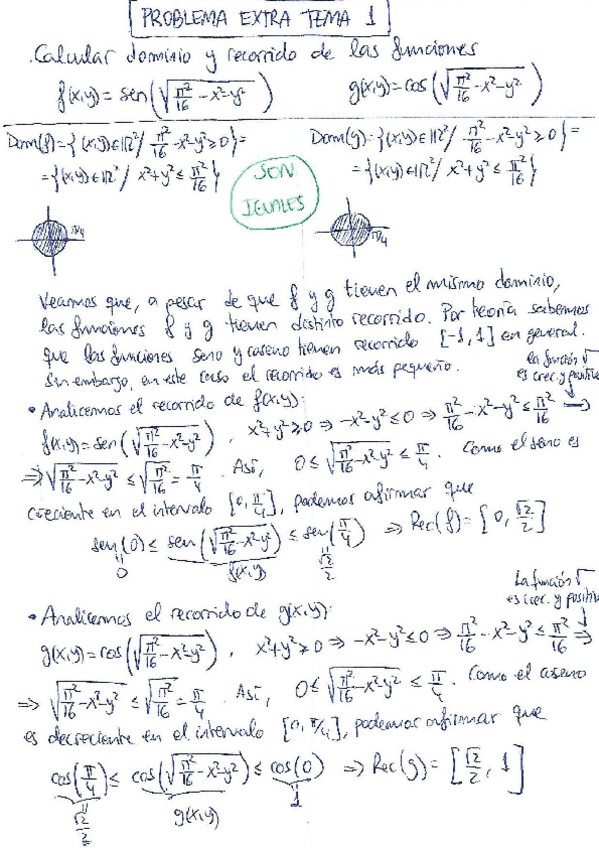 PROBLEMA EXTRA TEMA 1
. Calcular dominio y recorrido de las funciones
f(x,y)=sen(√(π²/16 - x² - y²)) g(x,y)=cos(√(π²/16 - x² - y²))
Dom(f)={(x,y)∈ℝ²/ π²/16 - x² - y² ≥ 0}= Dom(g)={(x,y)∈ℝ²/ π²/16 - x² - y² ≥ 0}=
={(x,y)∈ℝ²/ x²+y² ≤ π²/16} ={(x,y)∈ℝ²/ x²+y² ≤ π²/16}
SON
IGUALES
π/4 π/4
Veamos que, a pesar de que f y g tienen el mismo dominio,
las funciones f y g tienen distinto recorrido. Por teoría sabemos
que las funciones seno y coseno tienen recorrido [-1,1] en general.
Sin embargo, en este caso el recorrido es más pequeño.
la función √
es crec. y positiva
• Analicemos el recorrido de f(x,y):
f(x,y)=sen(√(π²/16 - x² - y²)), x²+y² ≥ 0 ⇒ -x²-y² ≤ 0 ⇒ π²/16 - x² - y² ≤ π²/16 ⇒
⇒ √(π²/16 - x² - y²) ≤ √(π²/16) = π/4. Así, 0 ≤ √(π²/16 - x² - y²) ≤ π/4. Como el seno es
creciente en el intervalo [0, π/4], podemos afirmar que
sen(0) ≤ sen(√(π²/16 - x² - y²)) ≤ sen(π/4) ⇒ Rec(f) = [0, √2/2]
0 f(x,y) √2/2
La función √
es crec. y positiva
• Analicemos el recorrido de g(x,y):
g(x,y)=cos(√(π²/16 - x² - y²)), x²+y² ≥ 0 ⇒ -x²-y² ≤ 0 ⇒ π²/16 - x² - y² ≤ π²/16 ⇒
⇒ √(π²/16 - x² - y²) ≤ √(π²/16) = π/4. Así, 0 ≤ √(π²/16 - x² - y²) ≤ π/4. Como el coseno
es decreciente en el intervalo [0, π/4], podemos afirmar que
cos(π/4) ≤ cos(√(π²/16 - x² - y²)) ≤ cos(0) ⇒ Rec(g) = [√2/2, 1]
√2/2 g(x,y) 1